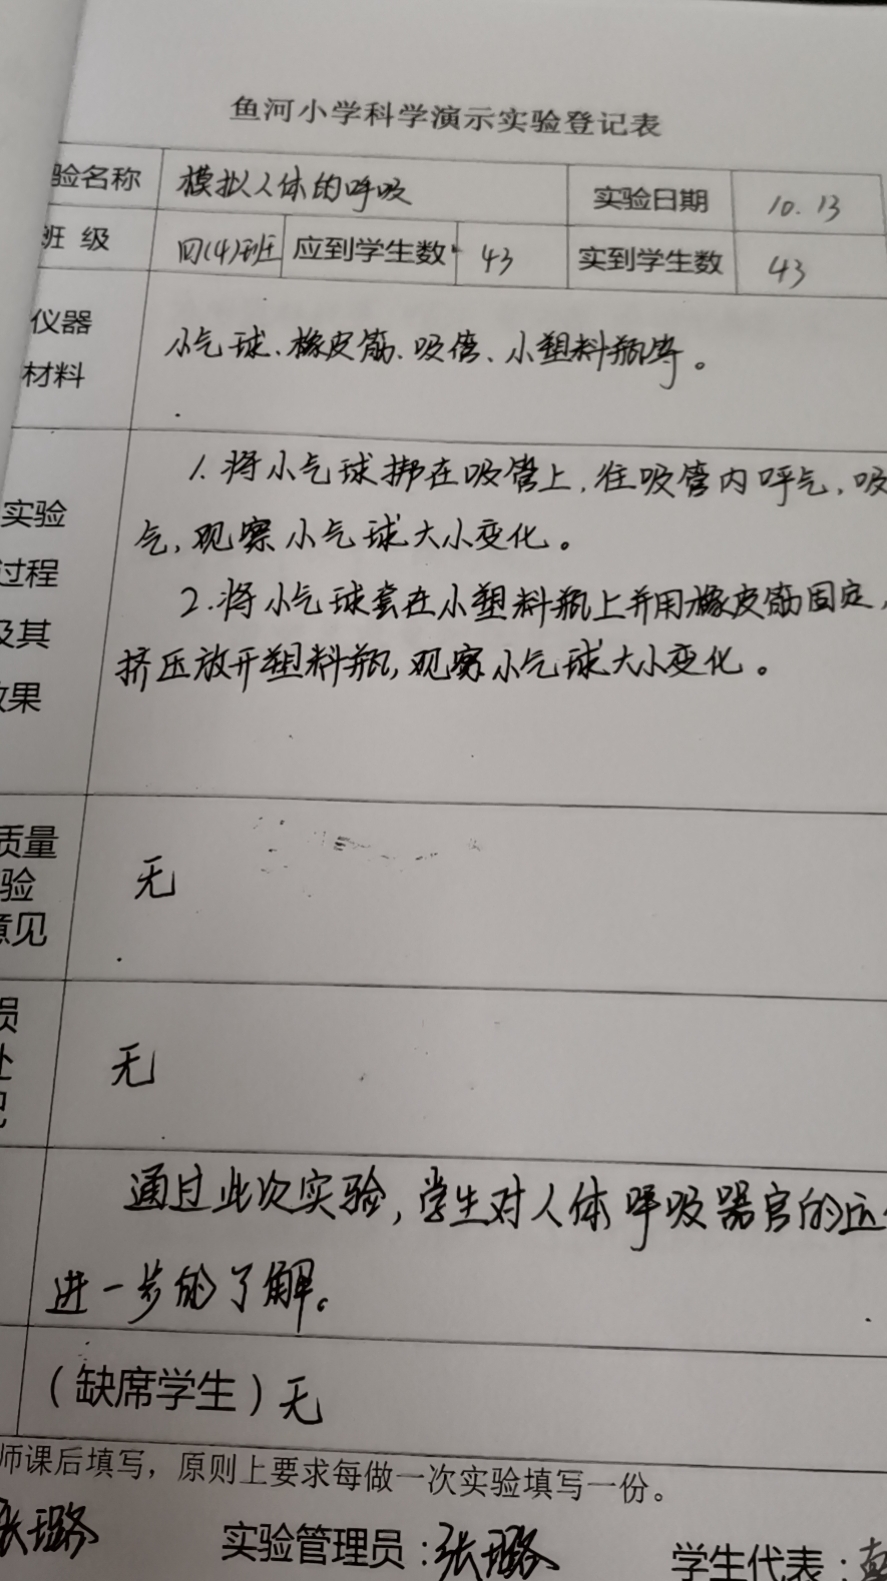 鱼河小学科学演示实验登记表
验名称 模拟人体的呼吸 实验日期 10.13
班 级 四(4)班 应到学生数 43 实到学生数 43
仪器
材料
小气球、橡皮筋、吸管、小塑料瓶等。
实验
过程
及其
效果
1.将小气球绑在吸管上,往吸管内呼气,吸
气,观察小气球大小变化。
2.将小气球套在小塑料瓶上并用橡皮筋固定,
挤压放开塑料瓶,观察小气球大小变化。
质量
验
意见
无
员
处
无
通过此次实验,学生对人体呼吸器官的运
进一步的了解。
(缺席学生)无
师课后填写,原则上要求每做一次实验填写一份。
张璐 实验管理员:张璐 学生代表: